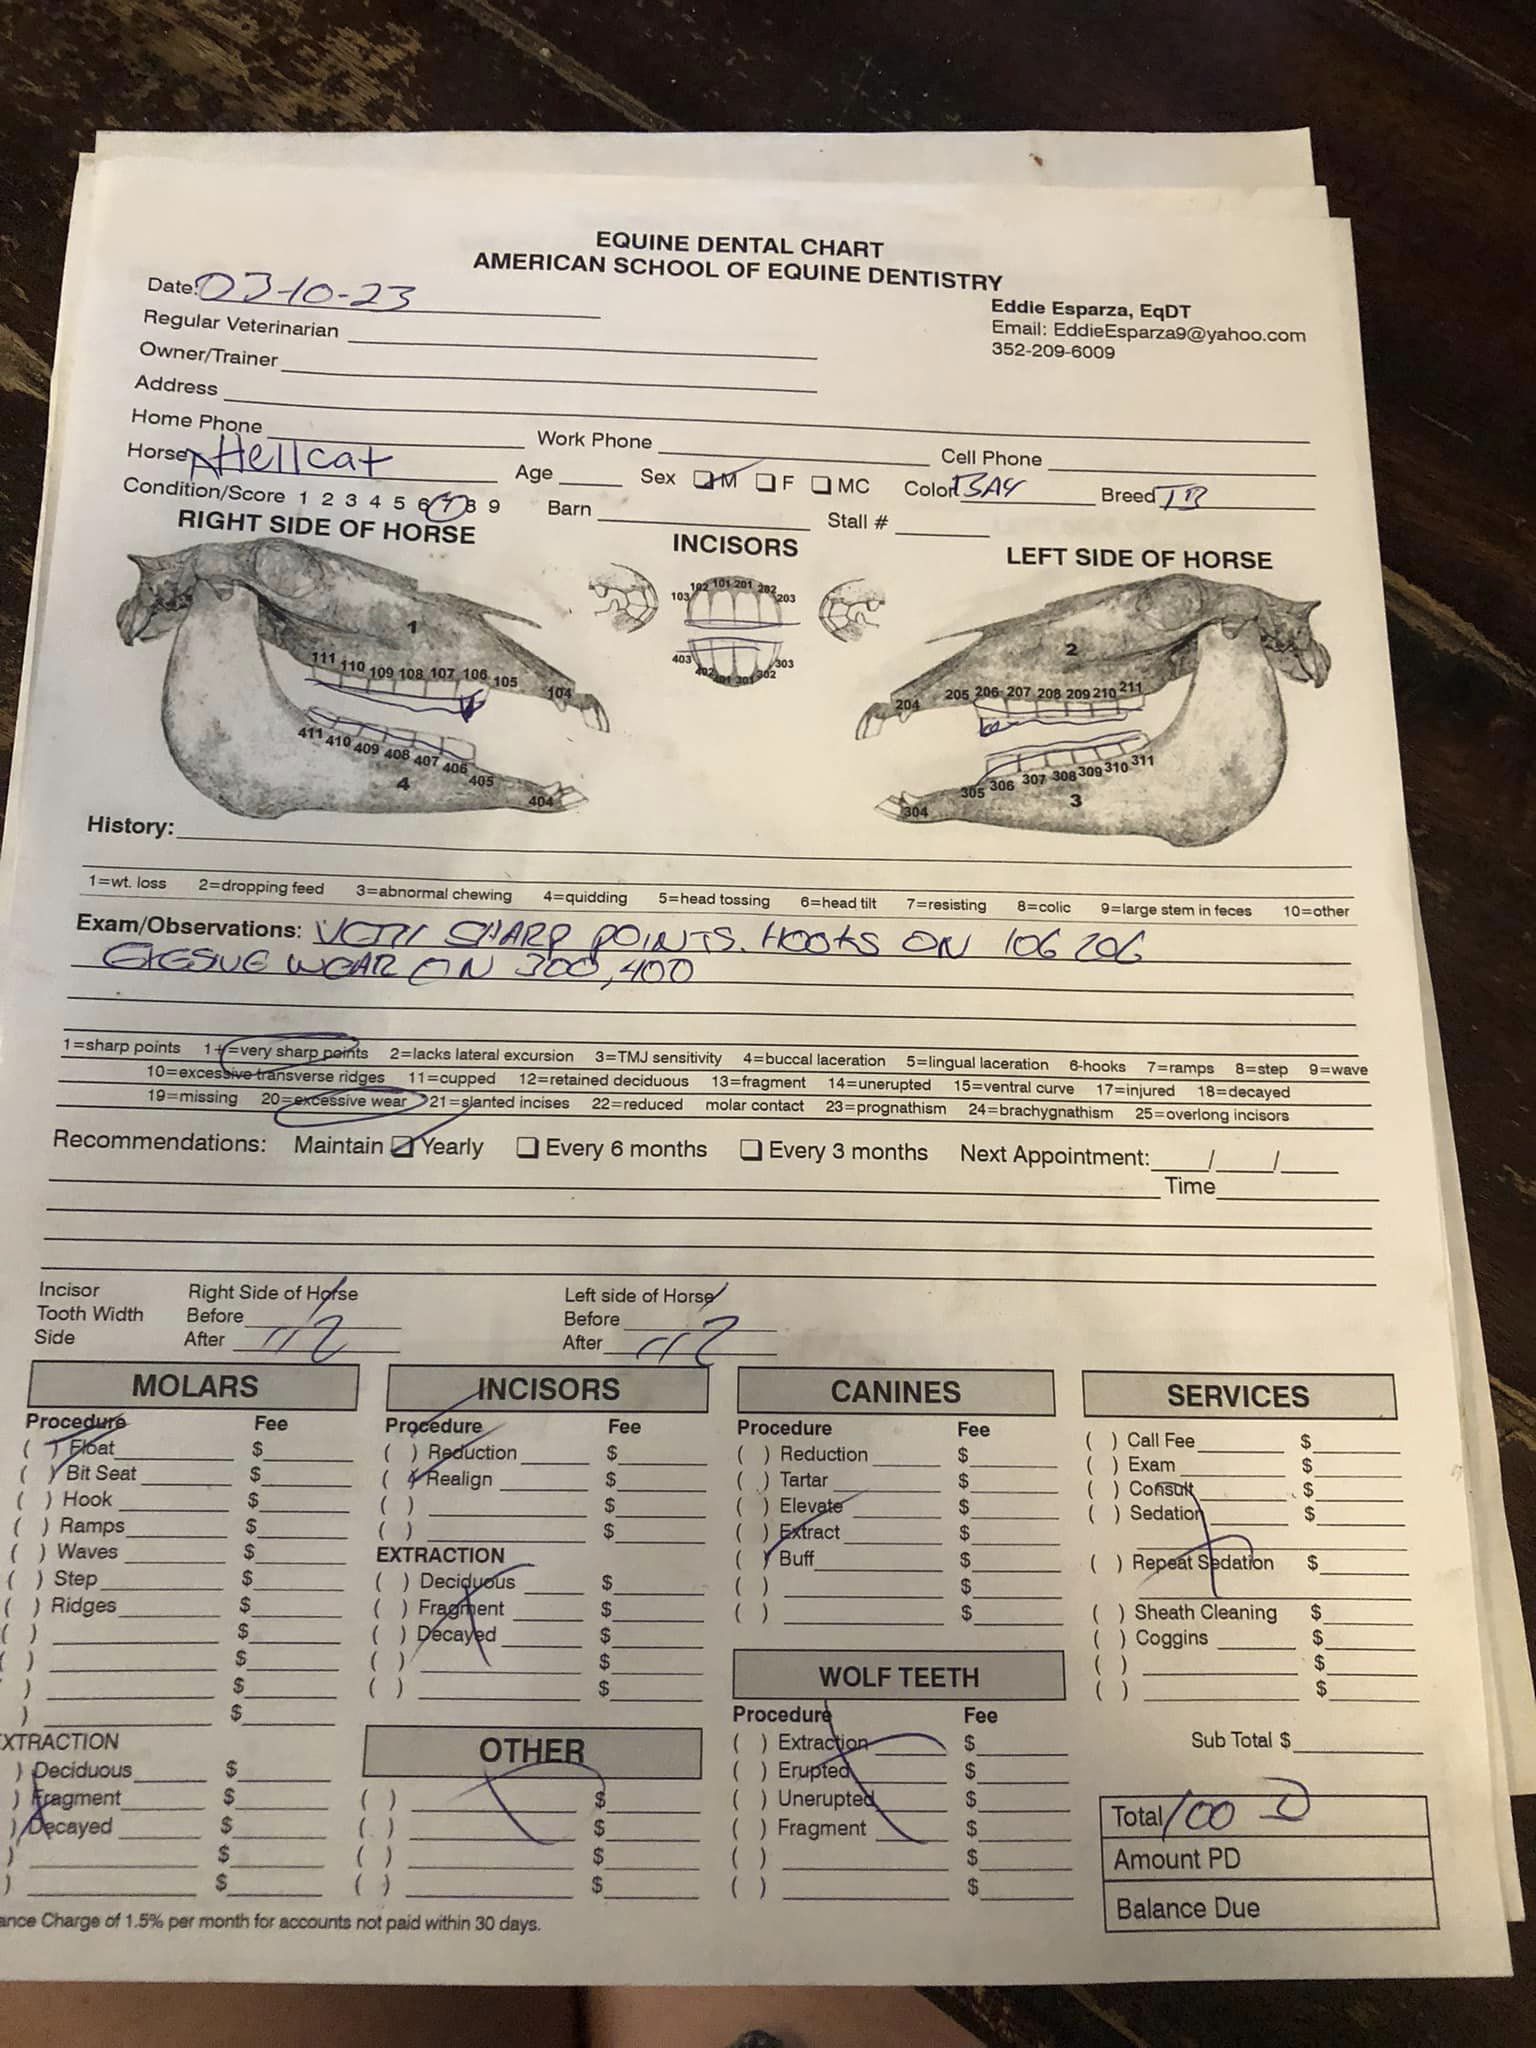 EQUINE DENTAL CHART
AMERICAN SCHOOL OF EQUINE DENTISTRY
Date: 03-10-23
Eddie Esparza, EqDT
Email: EddieEsparza9@yahoo.com
352-209-6009
Regular Veterinarian
Owner/Trainer
Address
Home Phone Work Phone Cell Phone
Horse Hellcat Age Sex M F MC Color BAY Breed TB
Condition/Score 1 2 3 4 5 6 7 8 9 Barn Stall #
RIGHT SIDE OF HORSE
INCISORS
LEFT SIDE OF HORSE
103 102 101 201 202 203
403 402 401 301 302 303
1
111 110 109 108 107 106 105 104
411 410 409 408 407 406 405 404
4
2
204 205 206 207 208 209 210 211
304 305 306 307 308 309 310 311
3
History:
1=wt. loss 2=dropping feed 3=abnormal chewing 4=quidding 5=head tossing 6=head tilt 7=resisting 8=colic 9=large stem in feces 10=other
Exam/Observations: VERY SHARP POINTS. HOOKS ON 106 206
WEAR ON 300, 400
1=sharp points 1+=very sharp points 2=lacks lateral excursion 3=TMJ sensitivity 4=buccal laceration 5=lingual laceration 6-hooks 7=ramps 8=step 9=wave
10=excessive transverse ridges 11=cupped 12=retained deciduous 13=fragment 14=unerupted 15=ventral curve 17=injured 18=decayed
19=missing 20=excessive wear 21=slanted incises 22=reduced molar contact 23=prognathism 24=brachygnathism 25=overlong incisors
Recommendations: Maintain Yearly Every 6 months Every 3 months Next Appointment: / /
Time
Incisor Right Side of Horse Left side of Horse
Tooth Width Before Before
Side After After
MOLARS
Procedure Fee
( ) Float $
( ) Bit Seat $
( ) Hook $
( ) Ramps $
( ) Waves $
( ) Step $
( ) Ridges $
( ) $
) $
) $
) $
XTRACTION
) Deciduous $
) Fragment $
) Decayed $
) $
) $
INCISORS
Procedure Fee
( ) Reduction $
( ) Realign $
( ) $
( ) $
EXTRACTION
( ) Deciduous $
( ) Fragment $
( ) Decayed $
( ) $
( ) $
OTHER
( ) $
( ) $
( ) $
( ) $
CANINES
Procedure Fee
( ) Reduction $
( ) Tartar $
( ) Elevate $
( ) Extract $
( ) Buff $
( ) $
( ) $
WOLF TEETH
Procedure Fee
( ) Extraction $
( ) Erupted $
( ) Unerupted $
( ) Fragment $
( ) $
( ) $
SERVICES
( ) Call Fee $
( ) Exam $
( ) Consult $
( ) Sedation $
( ) Repeat Sedation $
( ) Sheath Cleaning $
( ) Coggins $
( ) $
( ) $
Sub Total $
Total 100
Amount PD
Balance Due
ance Charge of 1.5% per month for accounts not paid within 30 days.